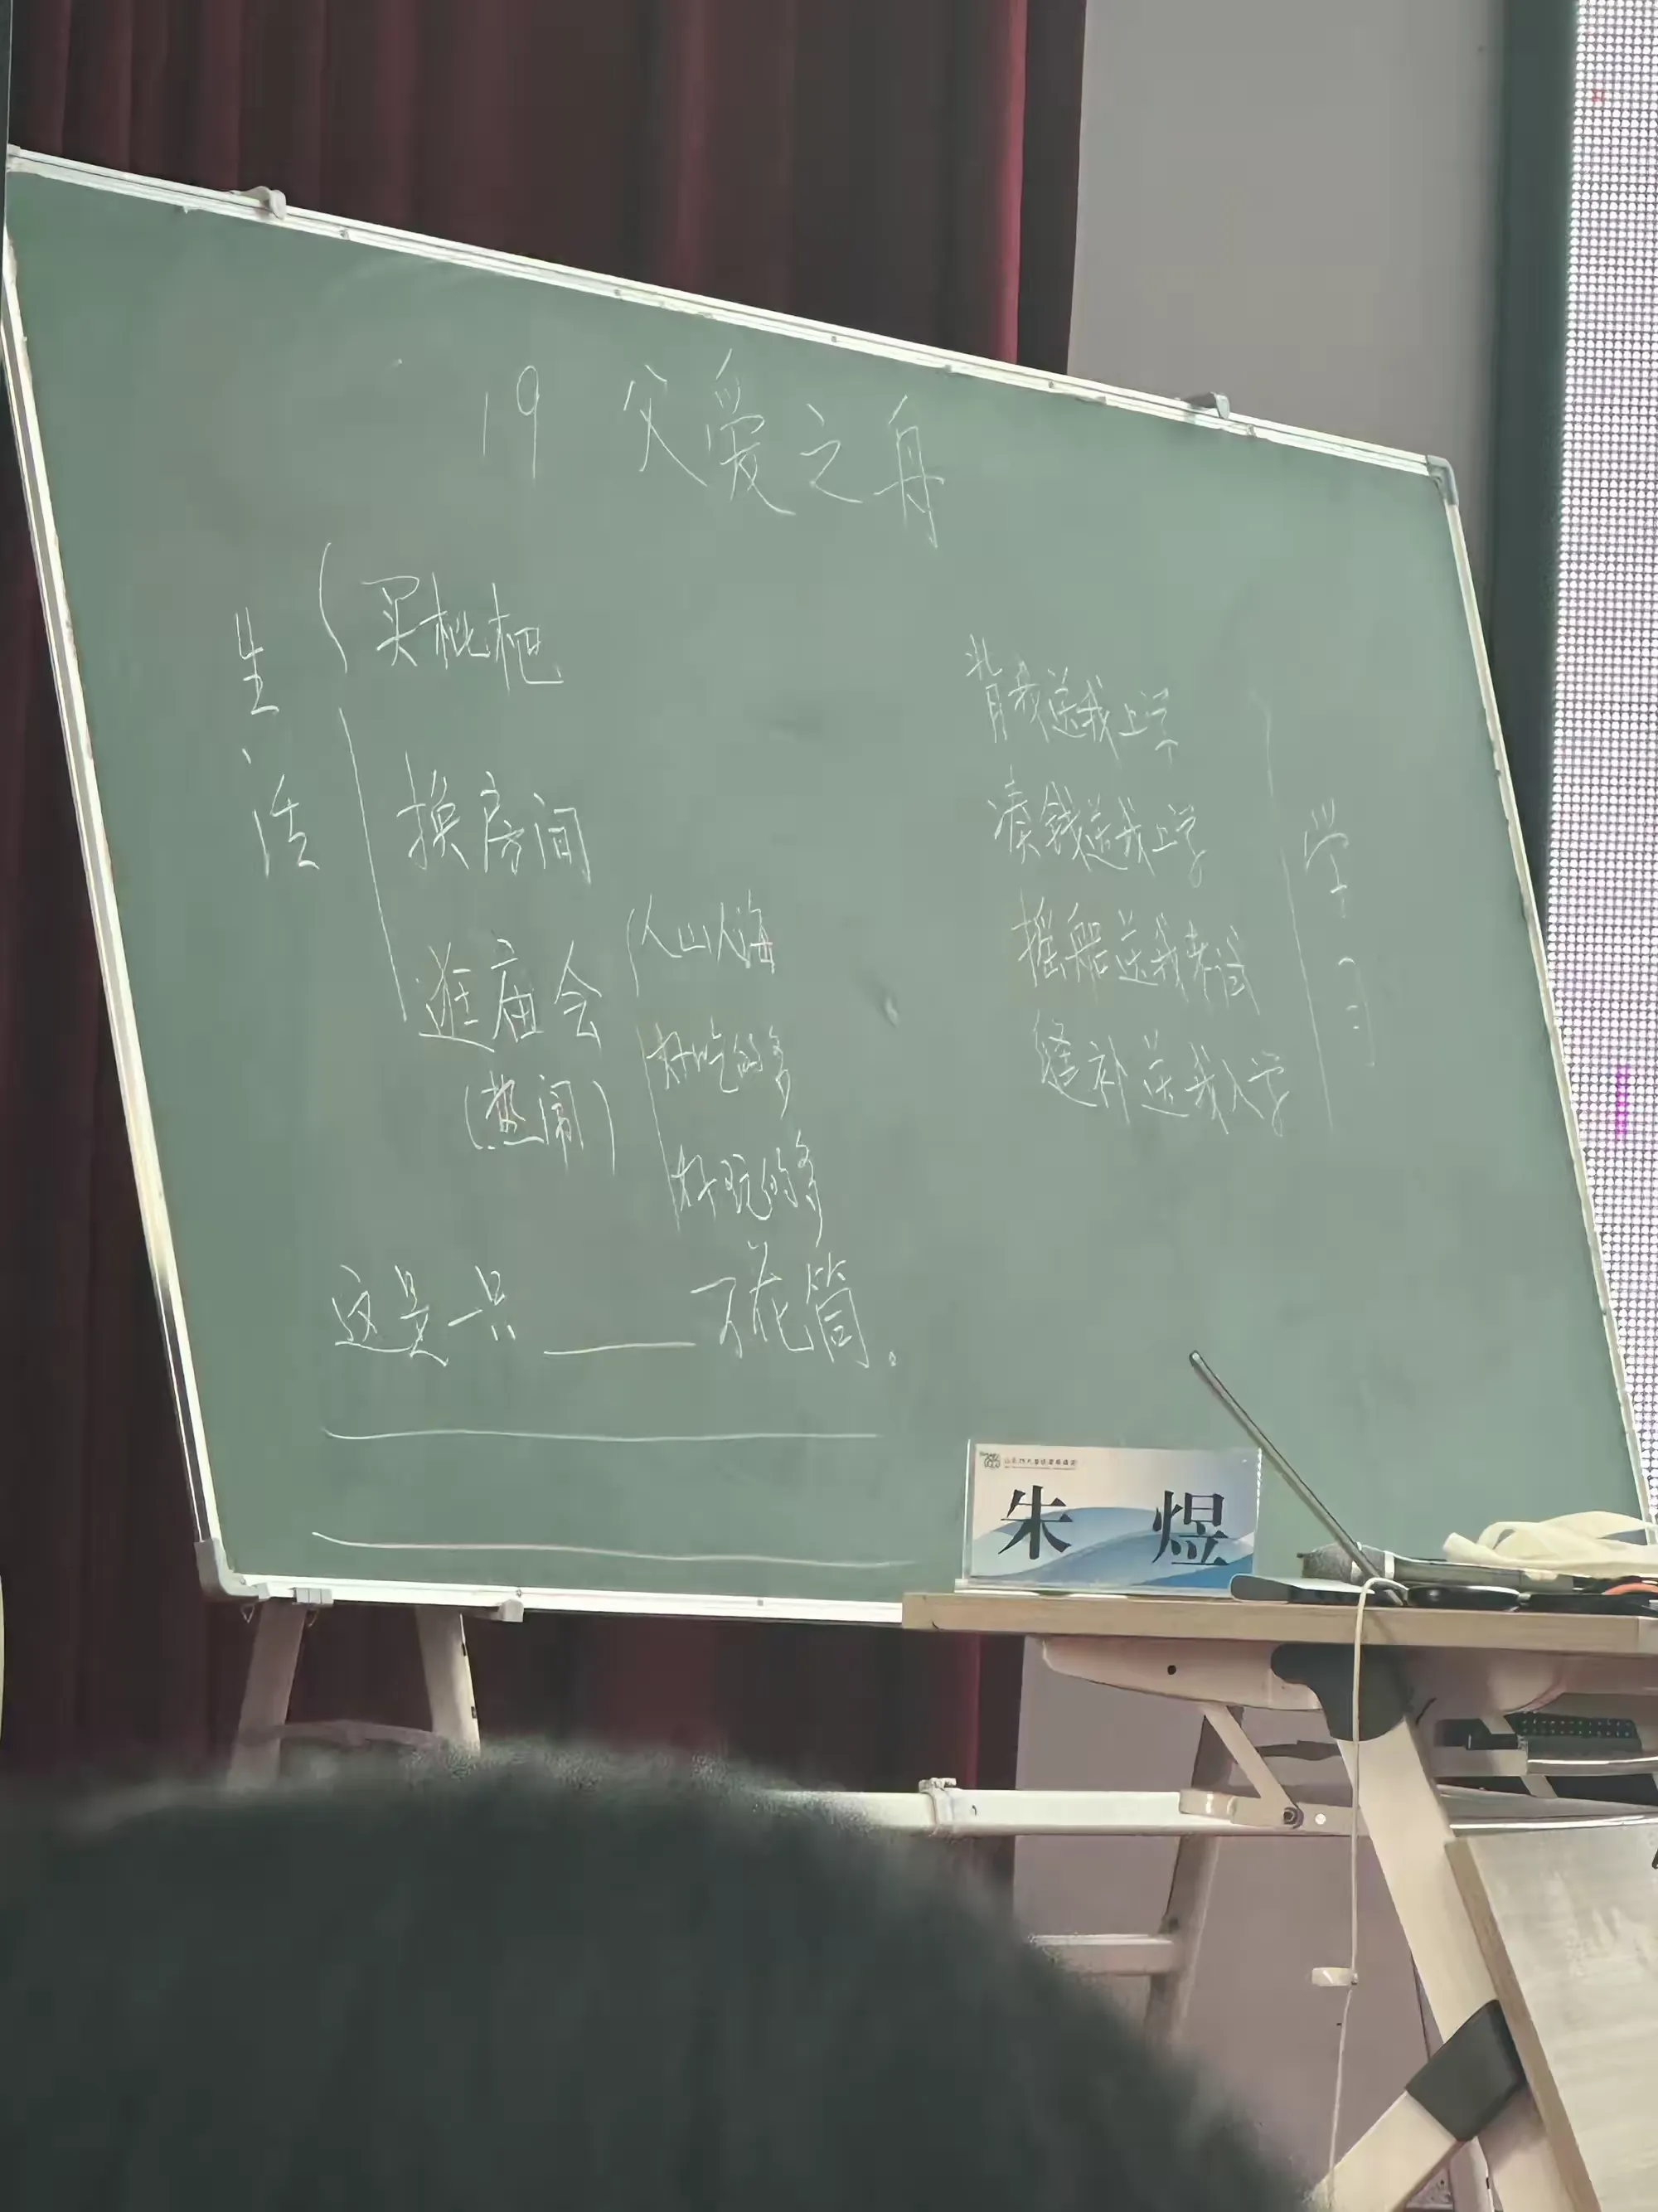 19 父爱之舟
生活
买枇杷
换房间
逛庙会
(热闹)
人山人海
好吃的多
好玩的多
背我送我上学
凑钱送我上学
摇船送我考试
缝补送我入学
学习
这是一只____万花筒。
朱 煜